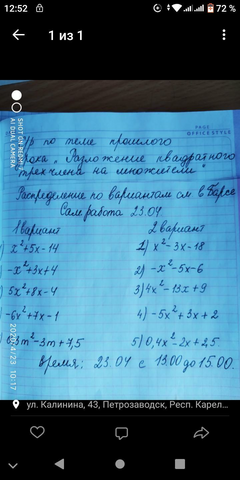 12:52
72 %
1 из 1
PAGE
OFFICE STYLE
с/р по теме прошлого
урока „Разложение квадратного
трехчлена на множители"
Распределение по вариантам см в Барсе
Сам работа 23.04
1 вариант
2 вариант
) x²+5x-14
1) x²-3x-18
) -x²+3x+4
2) -x²-5x-6
5x²+8x-4
3) 4x²-13x+9
-6x²+7x-1
4) -5x²+3x+2
0,3m²-3m+7,5
5) 0,4x²-2x+2,5
Время: 23.04 с 13.00 до 15.00.
SHOT ON REDMI
AI DUAL CAMERA
2020/4/23 10:17
ул. Калинина, 43, Петрозаводск, Респ. Карел...